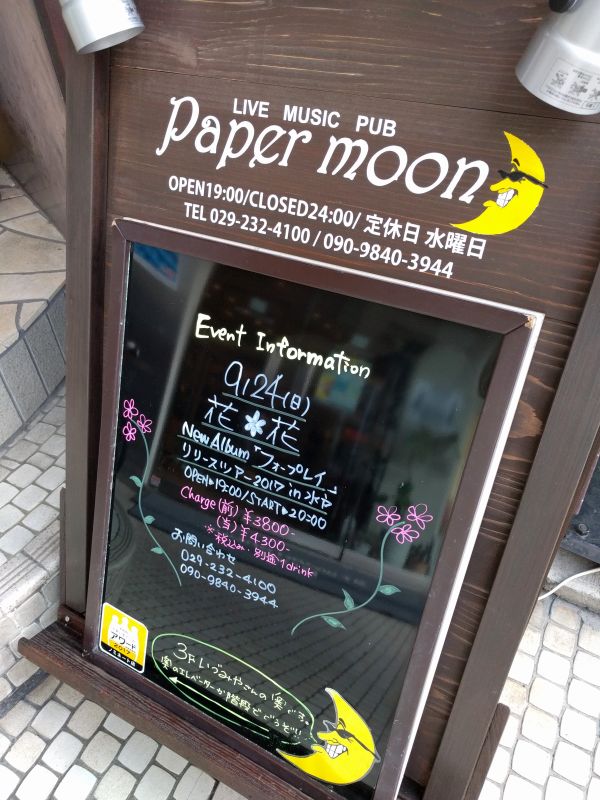 LIVE MUSIC PUB
Paper moon
OPEN19:00/CLOSED24:00/ 定休日 水曜日
TEL 029-232-4100 / 090-9840-3944
Event Information
9/24(日)
花*花
New Album「フォープレイ」
リリースツアー2017 in 水戸
OPEN▶19:00/START▶20:00
Charge(前)¥3800-
(当)¥4300-
*税込み・別途1drink
お問い合わせ
029-232-4100
090-9840-3944
アワード
2017
ノミネート店
3F いづみやさんの奥です。
奥のエレベーターか階段でどうぞ!!